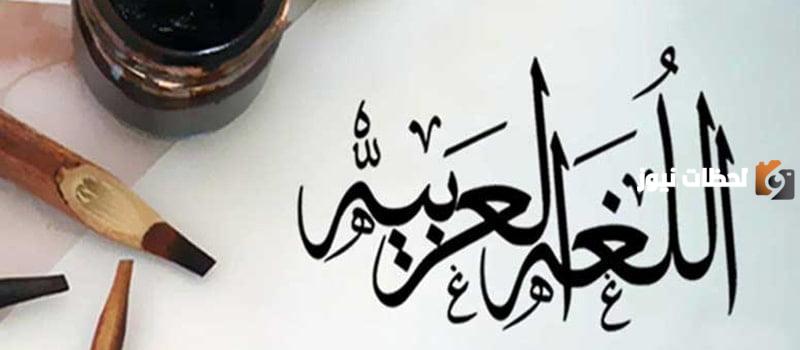 اللُّغة العربية
لحظات نيوز